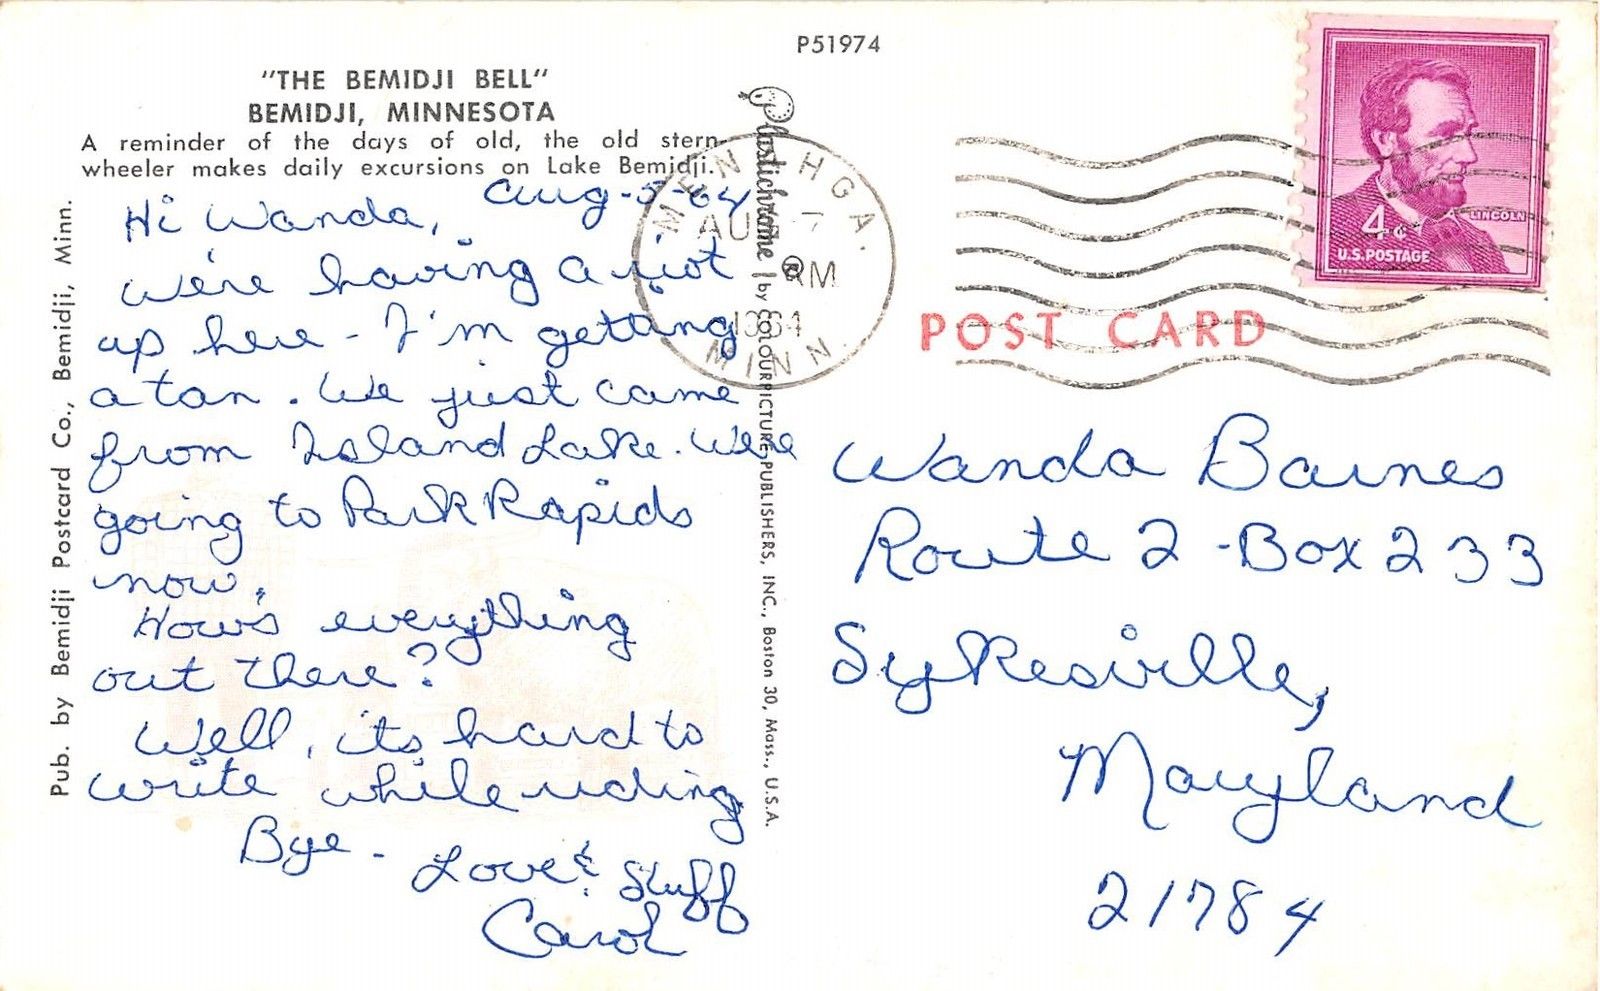 P51974
"THE BEMIDJI BELL"
BEMIDJI, MINNESOTA
A reminder of the days of old, the old stern-
wheeler makes daily excursions on Lake Bemidji.
Aug-5-64
Hi Wanda,
We're having a riot
up here - I'm getting
a tan. We just came
from Island Lake. We're
going to Park Rapids
now.
How's everything
out there?
Well, its hard to
write while riding
Bye - Love & Stuff
Carol
Pub. by Bemidji Postcard Co., Bemidji, Minn.
Plastichrome ® by COLOURPICTURE PUBLISHERS, INC., Boston 30, Mass., U.S.A.
MENAHGA.
AUG 7
PM
1964
MINN.
4¢ LINCOLN
U.S. POSTAGE
POST CARD
Wanda Barnes
Route 2 - Box 233
Sykesville,
Maryland
21784